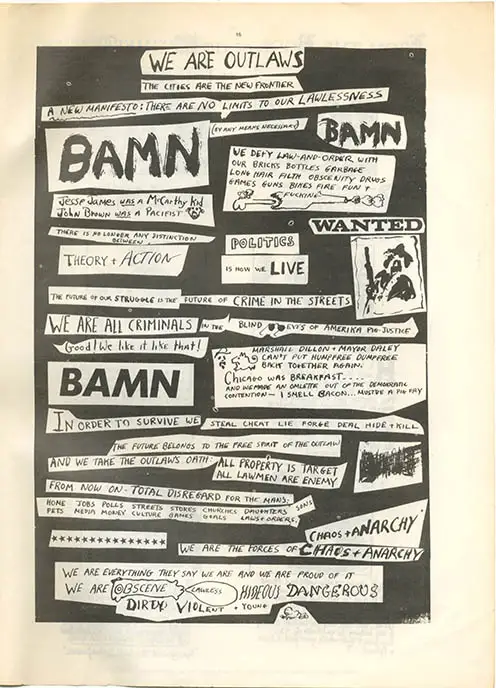 16
WE ARE OUTLAWS
THE CITIES ARE THE NEW FRONTIER
A NEW MANIFESTO: THERE ARE NO LIMITS TO OUR LAWLESSNESS
BAMN
(BY ANY MEANS NECESSARY)
BAMN
WE DEFY LAW-AND-ORDER WITH
OUR BRICKS BOTTLES GARBAGE
LONG HAIR FILTH OBSCENITY DRUGS
GAMES GUNS BIKES FIRE FUN +
FUCKING
Jesse James was a McCarthy Kid
John Brown was a Pacifist
THERE IS NO LONGER ANY DISTINCTION
BETWEEN
THEORY + ACTION
POLITICS
IS HOW WE LIVE
WANTED
THE FUTURE OF OUR STRUGGLE IS THE FUTURE OF CRIME IN THE STREETS
WE ARE ALL CRIMINALS IN THE BLIND EYES OF AMERIKA PIG-JUSTICE
Good! We like it like that!
BAMN
MARSHALL DILLON + MAYOR DALEY
CAN'T PUT HUMPFREE DUMPFREE
BACK TOGETHER AGAIN.
CHICAGO WAS BREAKFAST....
AND WE MADE AN OMLETTE OUT OF THE DEMOCRATIC
CONTENTION- I SMELL BACON... MUST BE A PIG
IN ORDER TO SURVIVE WE STEAL CHEAT LIE FORGE DEAL HIDE + KILL
THE FUTURE BELONGS TO THE FREE SPIRIT OF THE OUTLAW
AND WE TAKE THE OUTLAWS OATH: ALL PROPERTY IS TARGET
ALL LAWMEN ARE ENEMY
FROM NOW ON - TOTAL DISREGARD FOR THE MANS:
HOME JOBS POLLS STREETS STORES CHURCHES DAUGHTERS SONS
PETS MEDIA MONEY CULTURE GAMES GOALS LAWS + ORDERS.
CHAOS + ANARCHY
WE ARE THE FORCES OF CHAOS + ANARCHY
WE ARE EVERYTHING THEY SAY WE ARE AND WE ARE PROUD OF IT
WE ARE OBSCENE LAWLESS HIDEOUS DANGEROUS
DIRTY VIOLENT + YOUNG